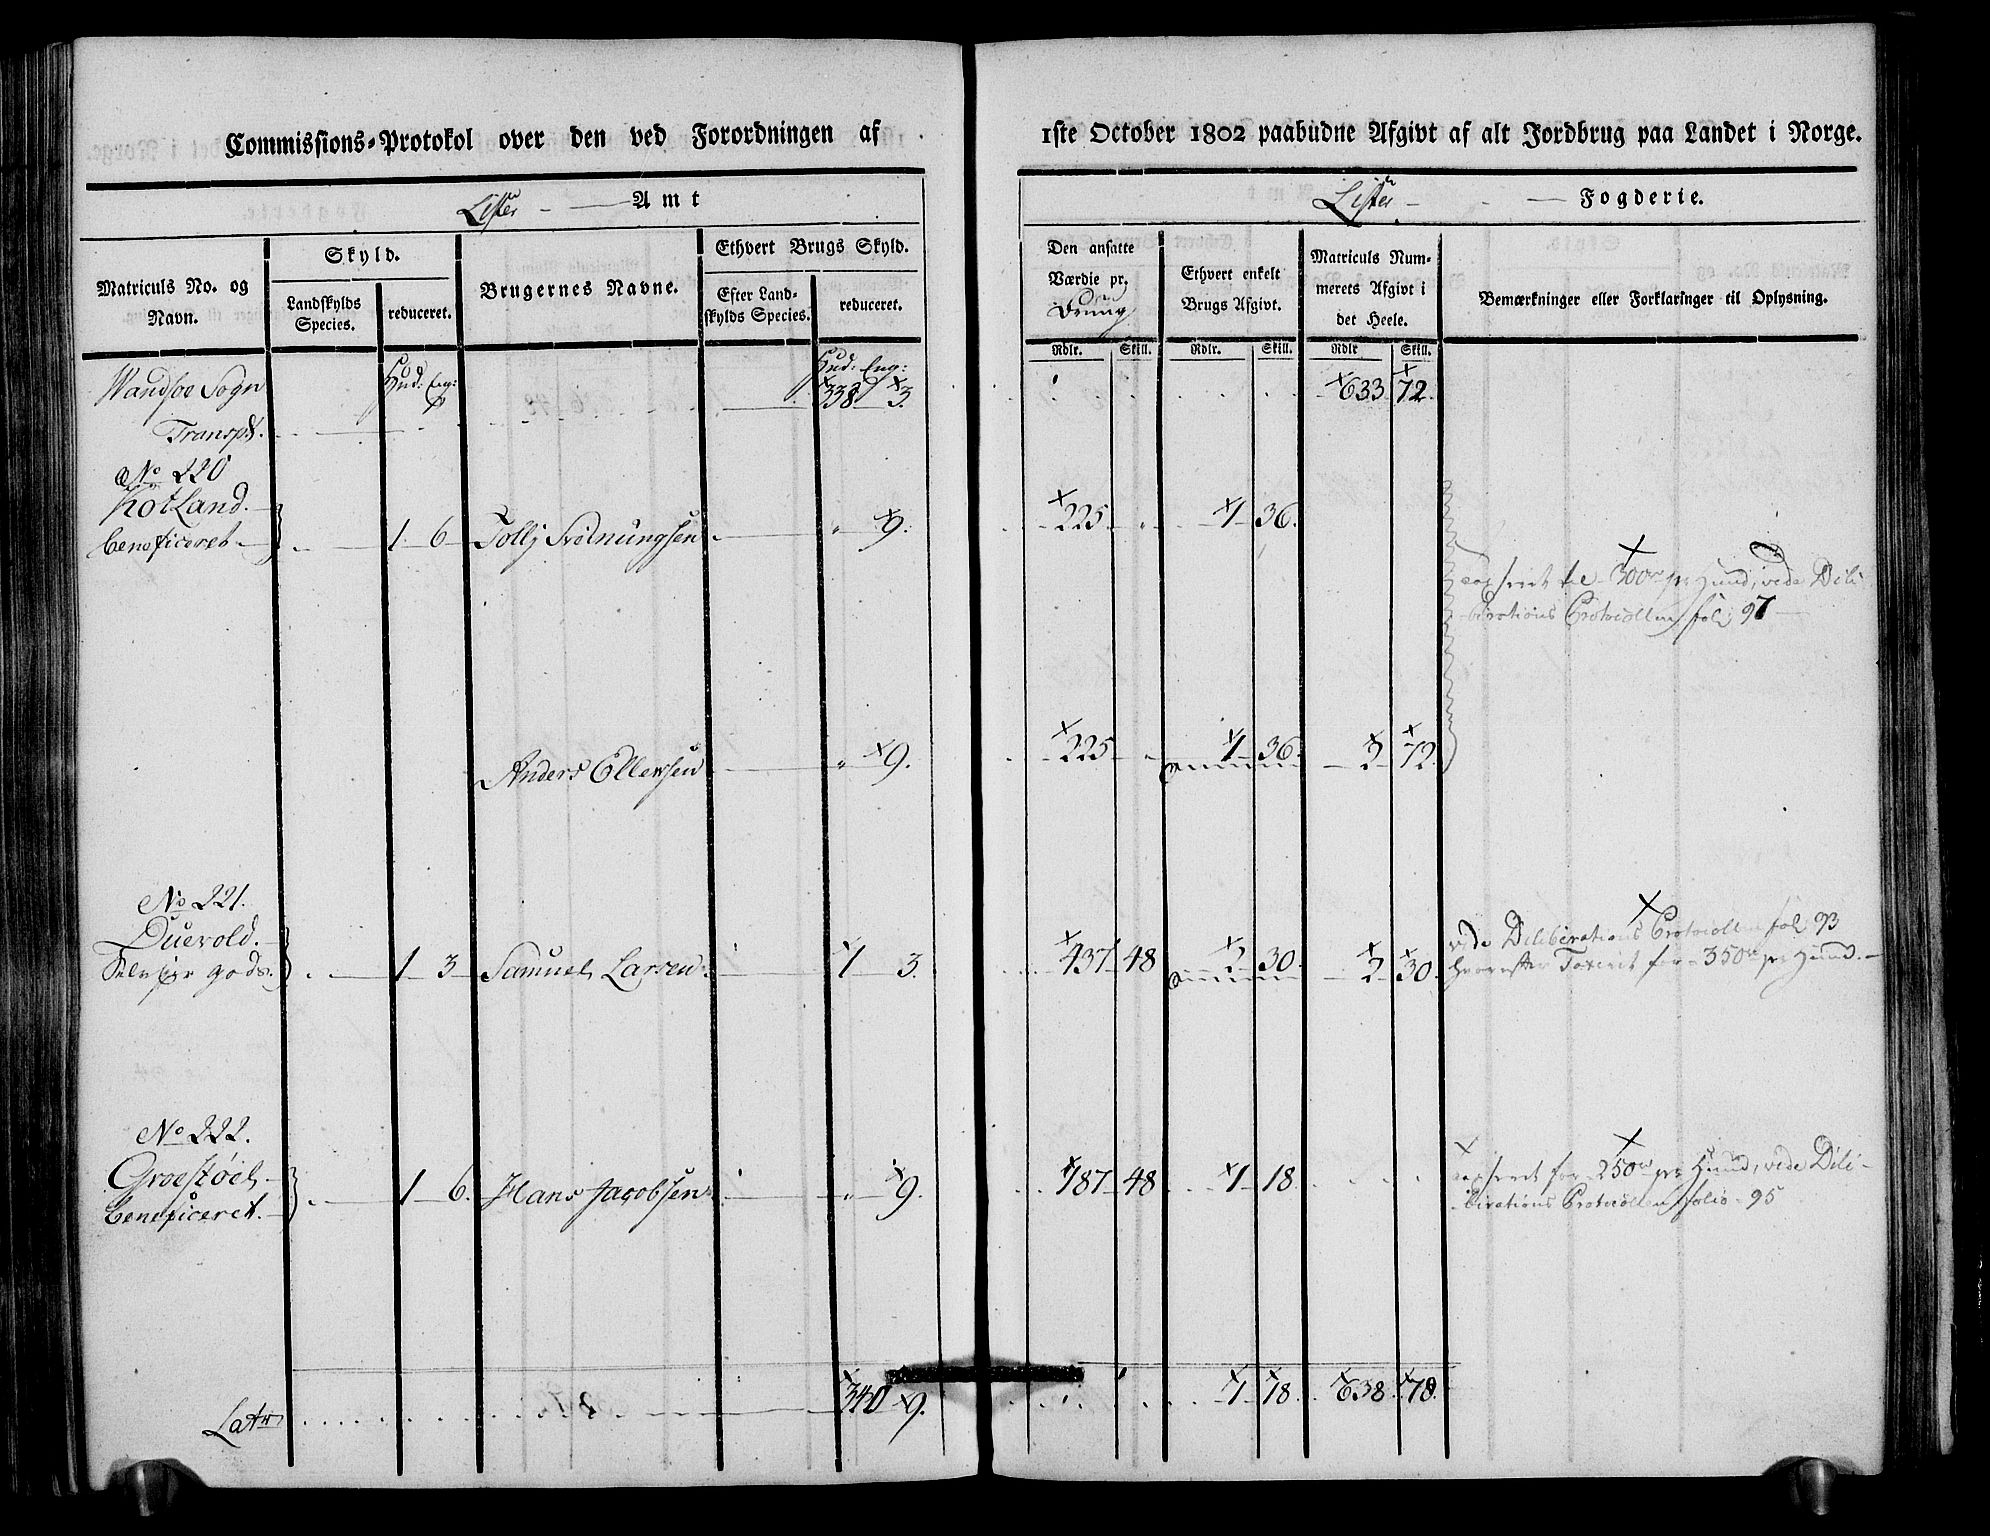 Commissions-Protokol over den ved Forordningen af
1ste October 1802 paabudne Afgivt af alt Jordbrug paa Landet i Norge.
Lister Amt
Lister Fogderie.
Matriculs No. og Navn.
Skyld.
Landskylds Species.
reduceret.
Brugernes Navne.
Ethvert Brugs Skyld.
Efter Landskylds Species.
reduceret.
Den ansatte Værdie pr.
Ethvert enkelt Brugs Afgivt.
Matriculs Nummerets Afgivt i det Heele.
Bemærkninger eller Forklaringer til Oplysning.
Rdlr. Skill. Rdlr. Skill. Rdlr Skill.
Wandsøe Sogn Hud: Eng: Hud: Eng:
Transpt. 338 3. 633 72.
No 220
Kötland.
beneficeret 1 6 Tollj Svenungsen " 9. 225 " 1 36.
taxeret til 300rd pr Hund, vide Deli-
berations Protocollen fol: 97
Anders Ollensen " 9. 225 1 36. 2 72.
No 221.
Duevold.
Selvejer gods. 1 3 Samuel Larsen 1 3. 437 48 2 30. 2 30.
vide Deliberations Protocollen fol 93
hvorefter Taxeret for 350rd pr Hund.
No 222.
Groestöel
beneficeret. 1 6. Hans Jacobsen " 9. 187 48 1 18
taxeret for 250rd pr Hund, vide Deli-
berations Protocollen folio 95
Latr 340 9. 1 18. 638 78.